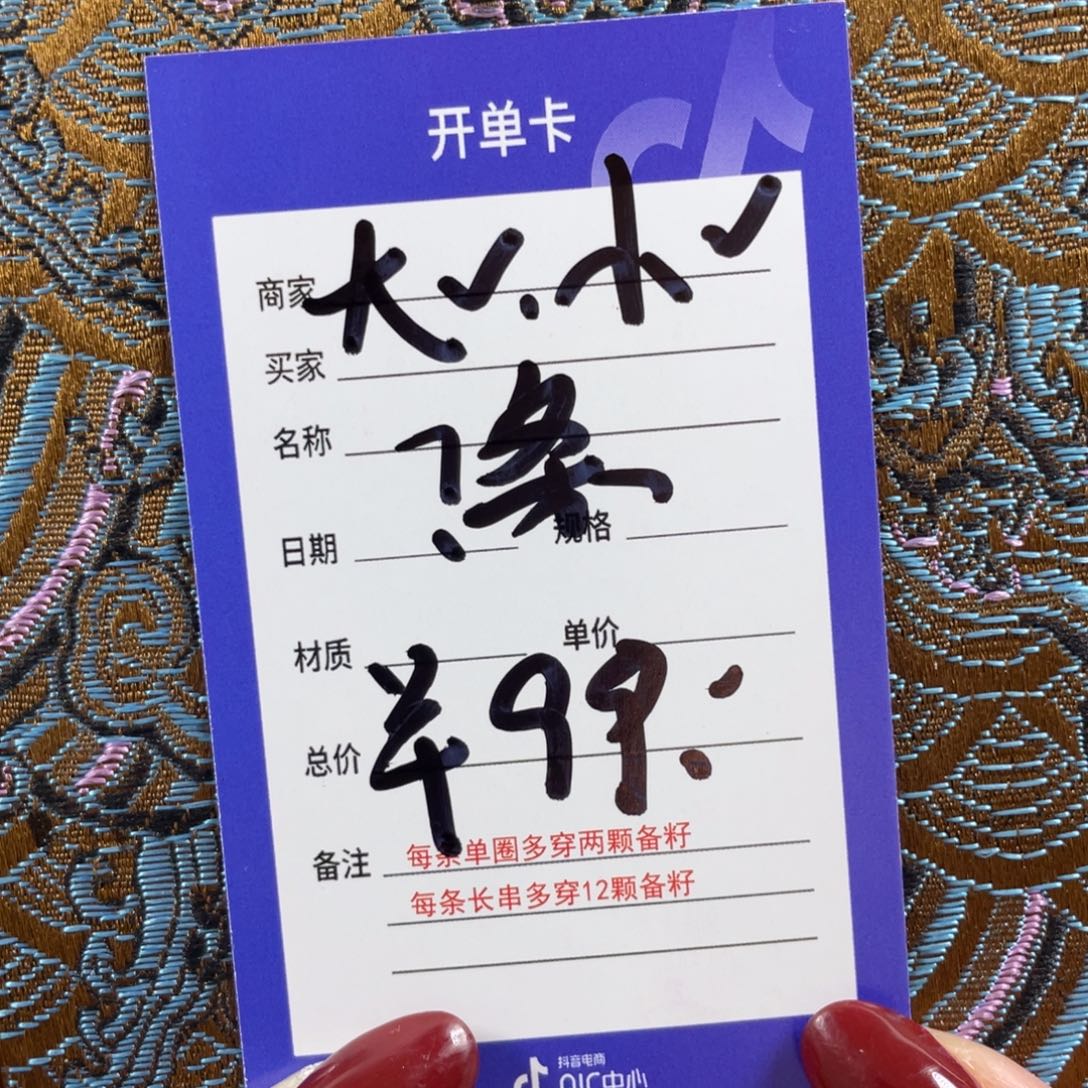 开单卡
商家 大✓.小✓
买家
名称 1条
日期 规格
材质 单价
总价 ¥99:
备注 每条单圈多穿两颗备籽
每条长串多穿12颗备籽
抖音电商
QIC中心